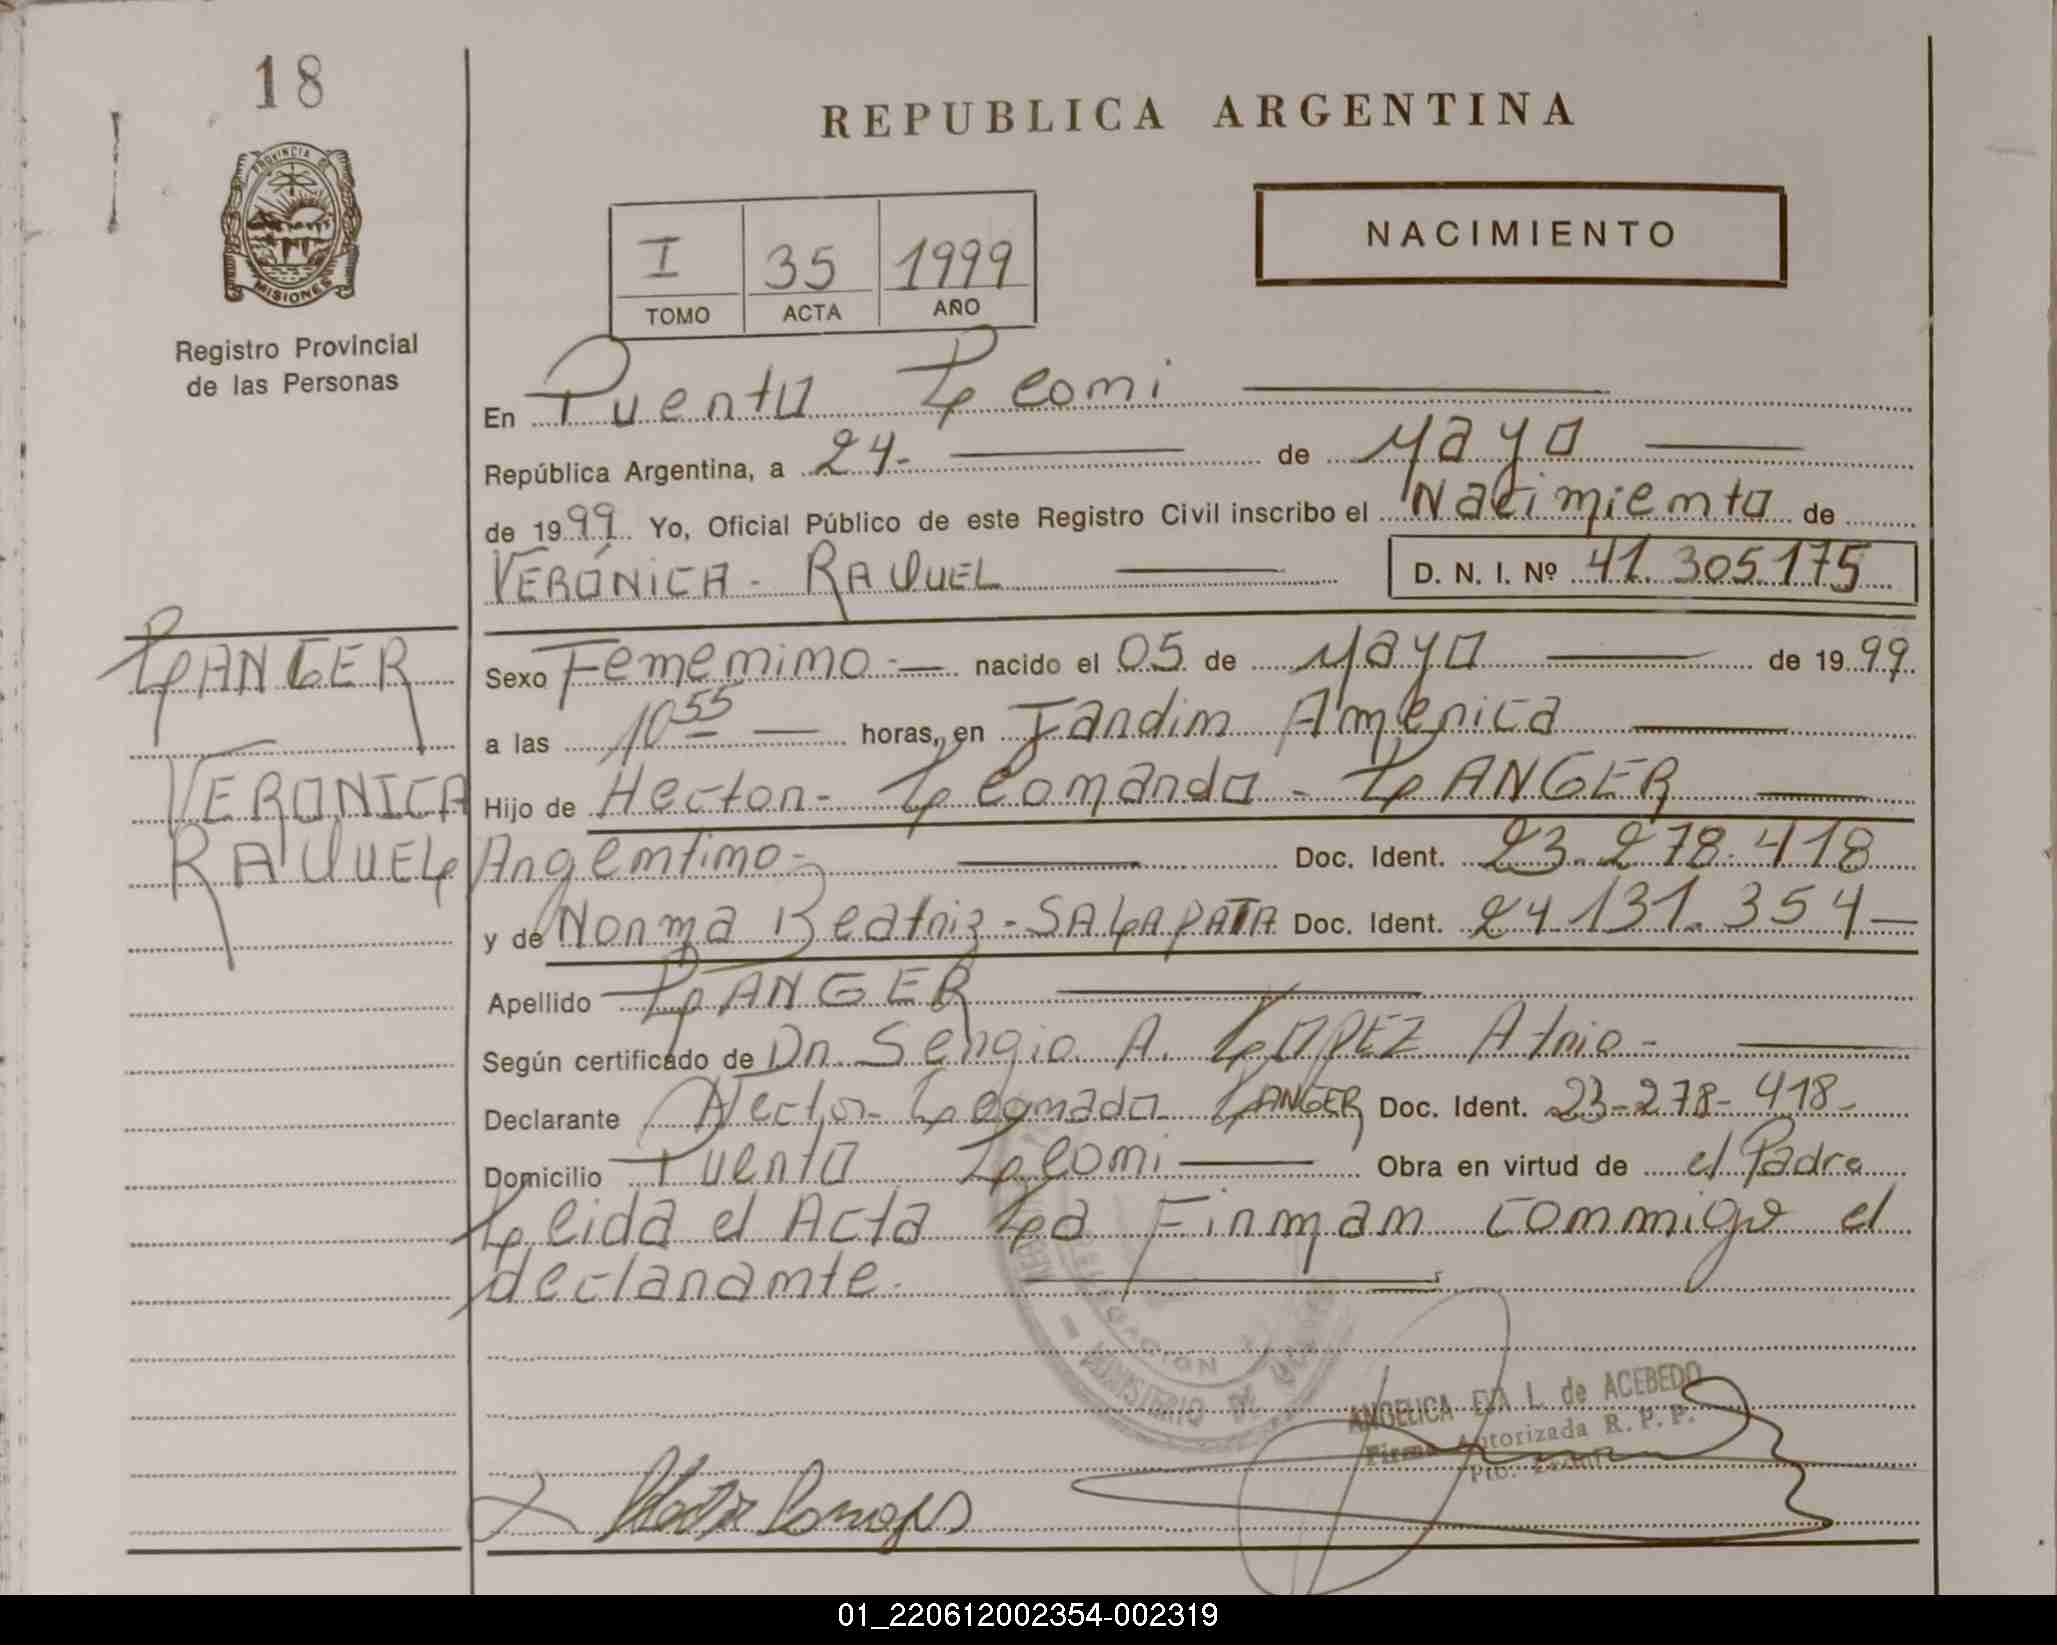 18
PROVINCIA DE
MISIONES
Registro Provincial
de las Personas
REPUBLICA ARGENTINA
NACIMIENTO
I 35 1999
TOMO ACTA AÑO
En Puerto Leoni
República Argentina, a 24- de Mayo
de 1999. Yo, Oficial Público de este Registro Civil inscribo el Nacimiento de
VERÓNICA - RAQUEL D. N. I. Nº 41.305.175
LANGER
VERONICA
RAQUEL
Sexo Femenino - nacido el 05 de Mayo de 1999.
a las 10 55 horas, en Jardin America
Hijo de Hector - Leonardo - LANGER
Argentino - Doc. Ident. 23.278.418
y de Norma Beatriz - SALAPATA Doc. Ident. 24.131.354
Apellido LANGER
Según certificado de Dr. Sergio A. LOPEZ Atrio -
Declarante Hector Leonardo LANGER Doc. Ident. 23-278-418-
Domicilio Puerto Leoni Obra en virtud de el Padre
Leida el Acta La Firman conmigo el
declarante.
MINISTERIO DE
ANGELICA L. de ACEBEDO
Firma Autorizada R. P. P.
01_220612002354-002319